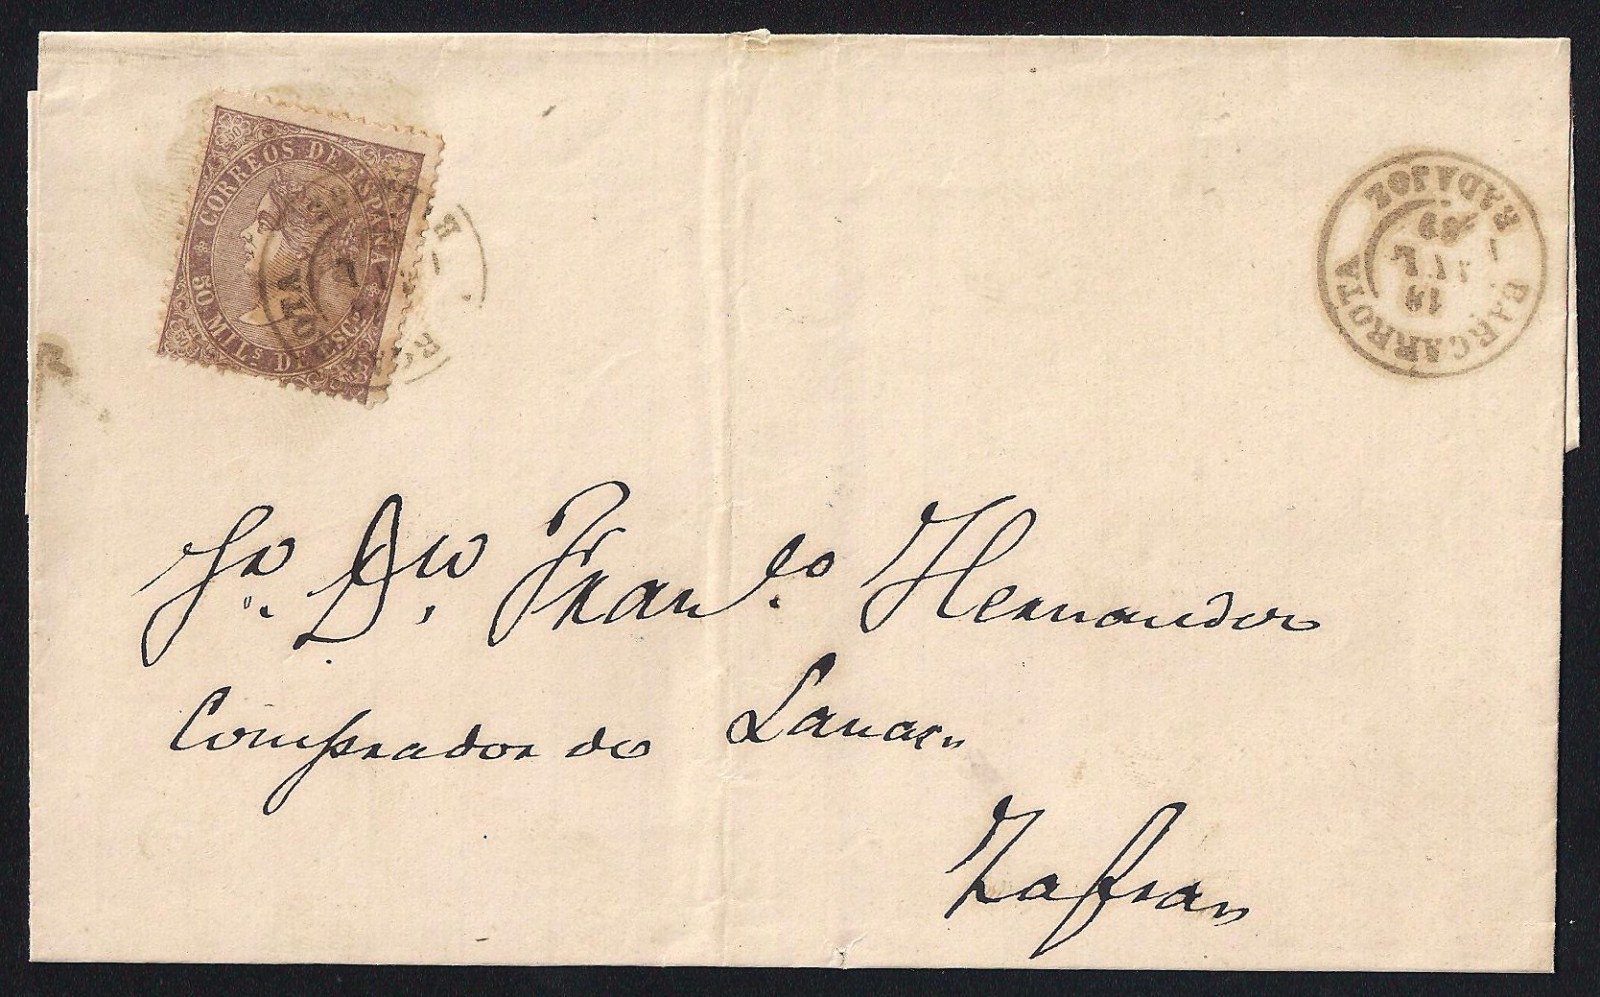 CORREOS DE ESPAÑA
50 MIL.s DE ESC.o
50
BARCARROTA
BADAJOZ
19
JUL
69
Sr. Dn. Franco. Hernandez
Comprador de Lanas
Zafra